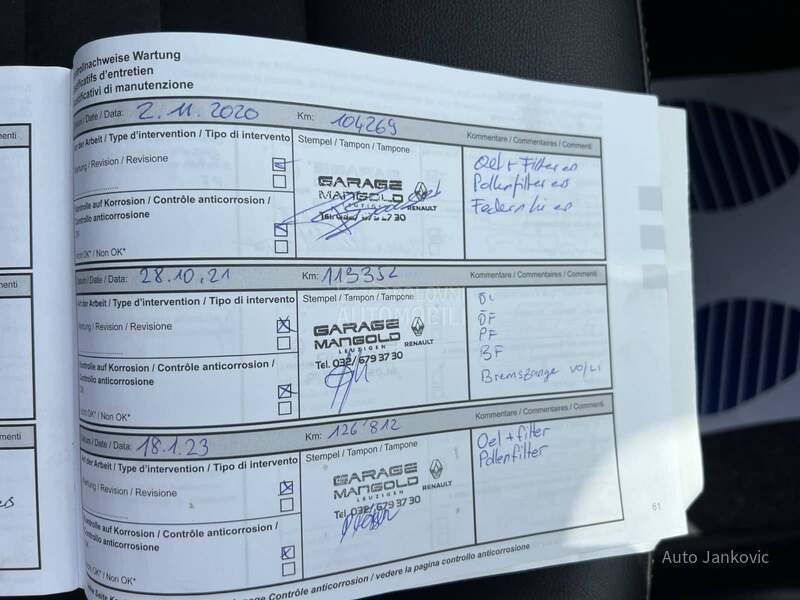 ntrollnachweise Wartung
tificatifs d'entretien
stificativi di manutenzione
Datum / Date / Data: 2.11.2020 Km: 104269 Kommentare / Commentaires / Commenti
Art der Arbeit / Type d'intervention / Tipo di intervento
Stempel / Tampon / Tampone
Wartung / Revision / Revisione
GARAGE
MANGOLD
RENAULT
Oel + Filter ers
Pollenfilter ers
Kontrolle auf Korrosion / Contrôle anticorrosion /
Controllo anticorrosione
OK
Nicht OK* / Non OK*
Datum / Date / Data: 28.10.21 Km: 113352 Kommentare / Commentaires / Commenti
Art der Arbeit / Type d'intervention / Tipo di intervento
Stempel / Tampon / Tampone
Wartung / Revision / Revisione
GARAGE
MANGOLD
LEUZIGEN
RENAULT
Tel. 032/679 37 30
ÖF
PF
BF
Bremszange vo/Li
Kontrolle auf Korrosion / Contrôle anticorrosion /
Controllo anticorrosione
OK
Nicht OK* / Non OK*
Datum / Date / Data: 18.1.23 Km: 126'812 Kommentare / Commentaires / Commenti
Art der Arbeit / Type d'intervention / Tipo di intervento
Stempel / Tampon / Tampone
Wartung / Revision / Revisione
GARAGE
MANGOLD
LEUZIGEN
RENAULT
Tel. 032/679 37 30
Oel + filter
Pollenfilter
Kontrolle auf Korrosion / Contrôle anticorrosion /
Controllo anticorrosione
OK
Nicht OK* / Non OK*
Contrôle anticorrosion / vedere la pagina controllo anticorrosione
61
menti
menti
menti
POLOVNI
AUTOMOBILI
Auto Jankovic